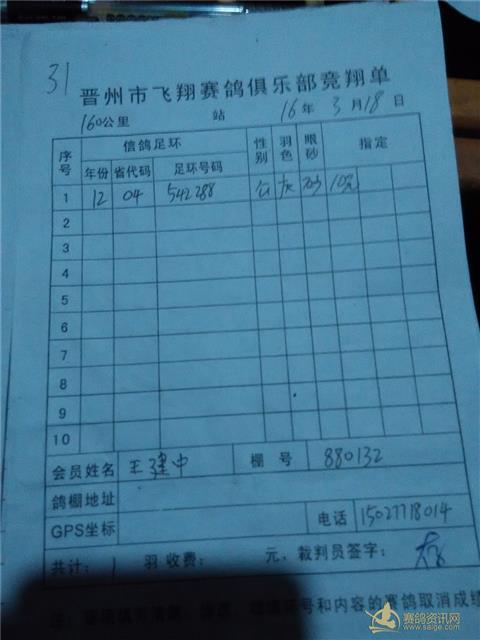 31
晋州市飞翔赛鸽俱乐部竞翔单
160公里 站 16年3月18日
序号 信鸽足环 性别 羽色 眼砂 指定
年份 省代码 足环号码
1 12 04 542288 公 灰 砂 10元
2
3
4
5
6
7
8
9
10
会员姓名 王建中 棚号 880132
鸽棚地址
GPS坐标 电话 15027718014
共计: 1 羽收费: 元、裁判员签字:
和内容的赛鸽取消成绩
赛鸽资讯网
www.saige.com